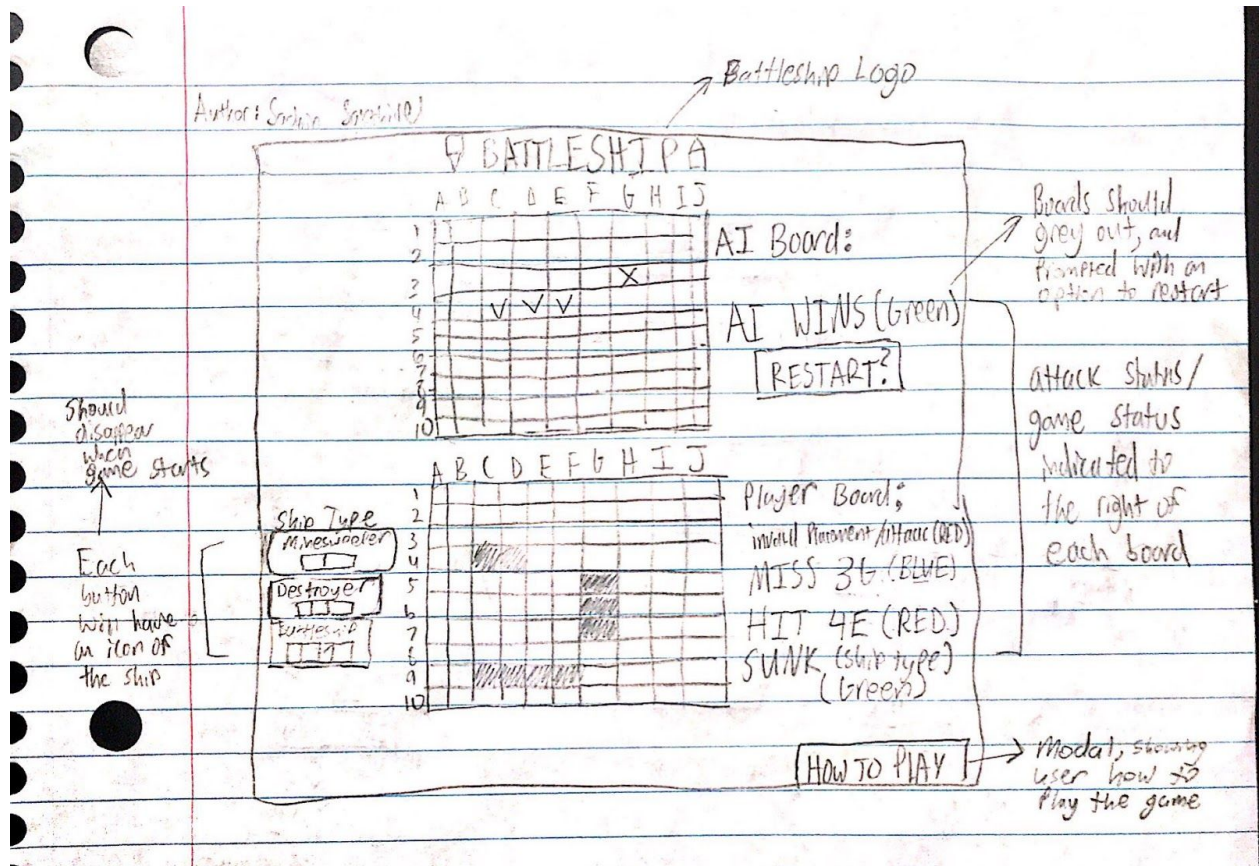 Battleship Logo
Author:
BATTLESHIP
A B C D E F G H I J
1
2
3
4
5
6
7
8
9
10
AI Board:
X
V V V
AI WINS (Green)
RESTART?
Boards should
grey out, and
prompted with an
option to restart
attack status/
game status
indicated to
the right of
each board
Should
disappear
when
game starts
Each
button
will have
an icon of
the ship
Ship Type
Minesweeper
Destroyer
Battleship
A B C D E F G H I J
1
2
3
4
5
6
7
8
9
10
Player Board:
invalid Placement/attack (RED)
MISS 3G (BLUE)
HIT 4E (RED)
SUNK (ship type)
(Green)
HOW TO PLAY
Modal, showing
user how to
Play the game